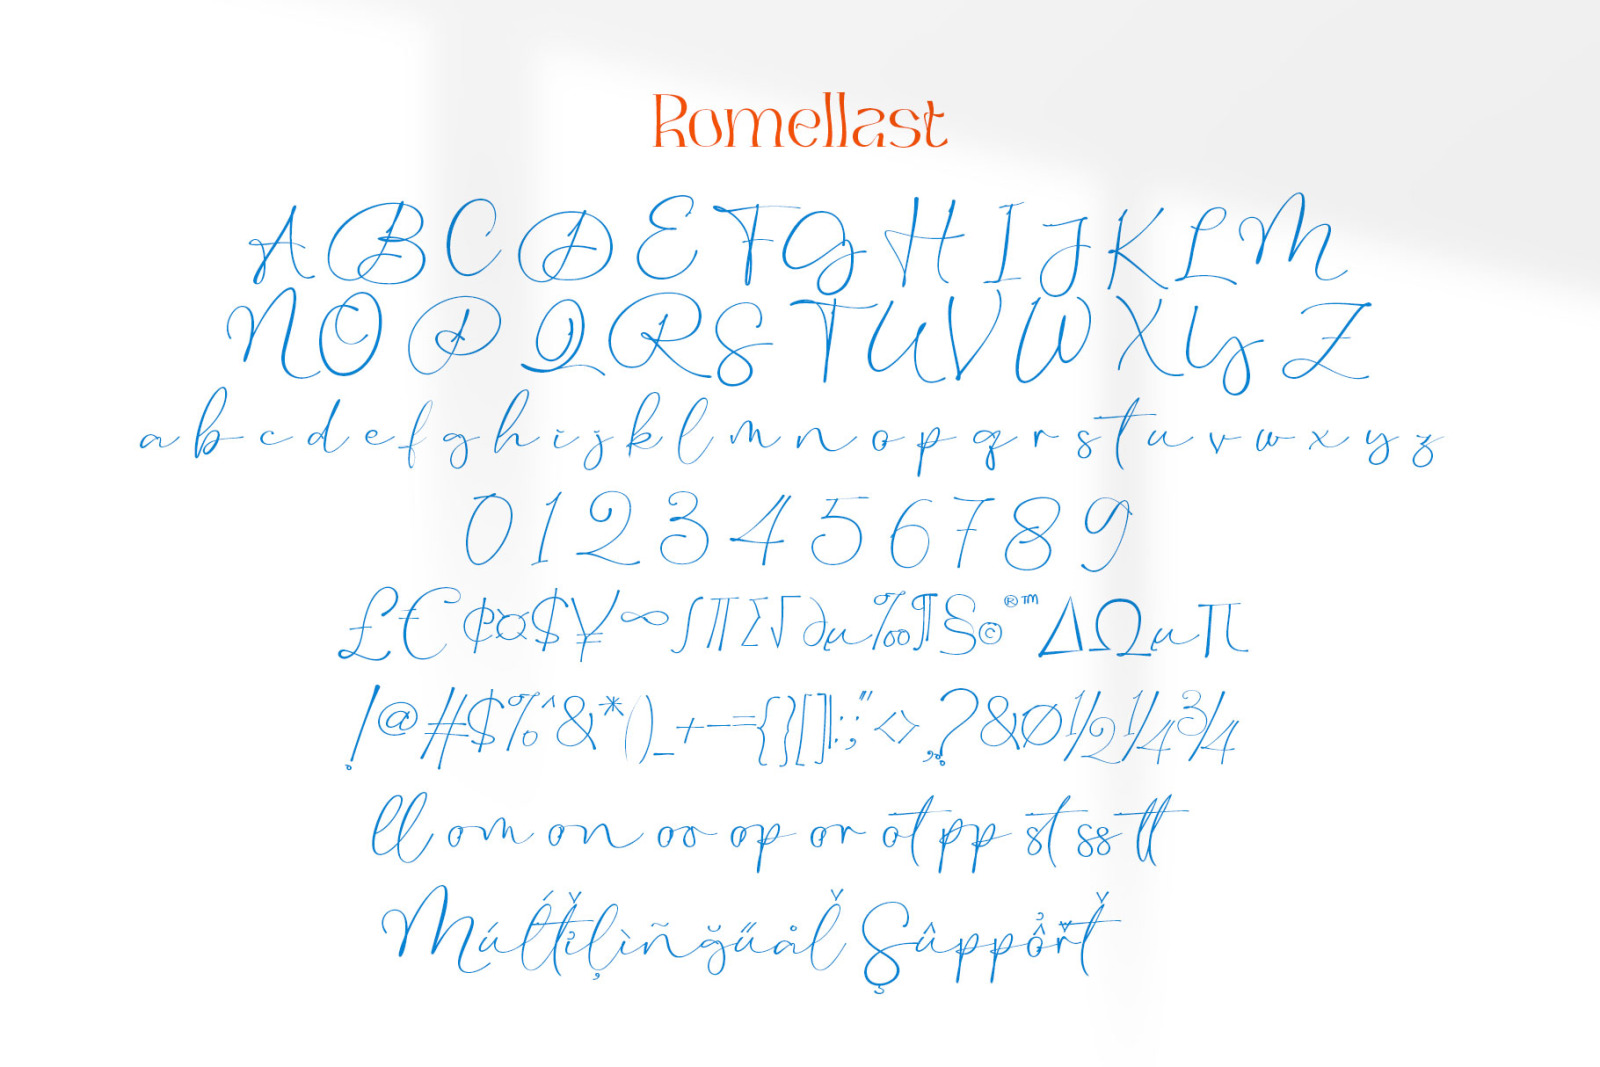 Romellast
A B C D E F G H I J K L M
N O P Q R S T U V W X Y Z
a b c d e f g h i j k l m n o p q r s t u v w x y z
0 1 2 3 4 5 6 7 8 9
£€¢¤$¥∞∫∏∑√∂µ‰¶§©®™∆Ωµπ
!@#$%^&*()_+-–={}[]|:;"<>,.?&Ø½¼¾
ll om on oo op or ot pp st ss tt
Múĺťỉļìñğűåľ Şûppổřť